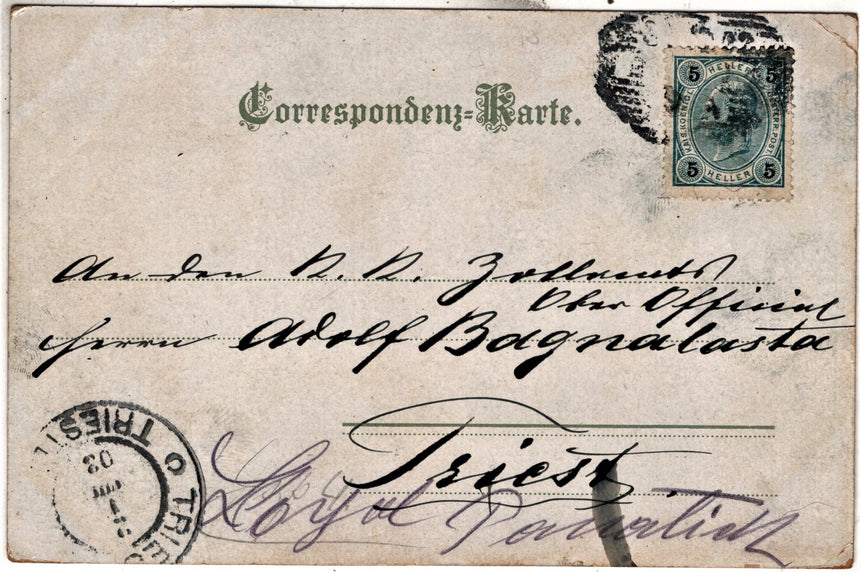 Correspondenz-Karte.
5 HELLER 5
KAIS. KOENIGL. OESTERR. POST.
5 HELLER 5
An den K. K. Zollamts
Ober Official
Herrn Adolf Bagnalasta
Triest
TRIEST TRIE
03
Lloyd